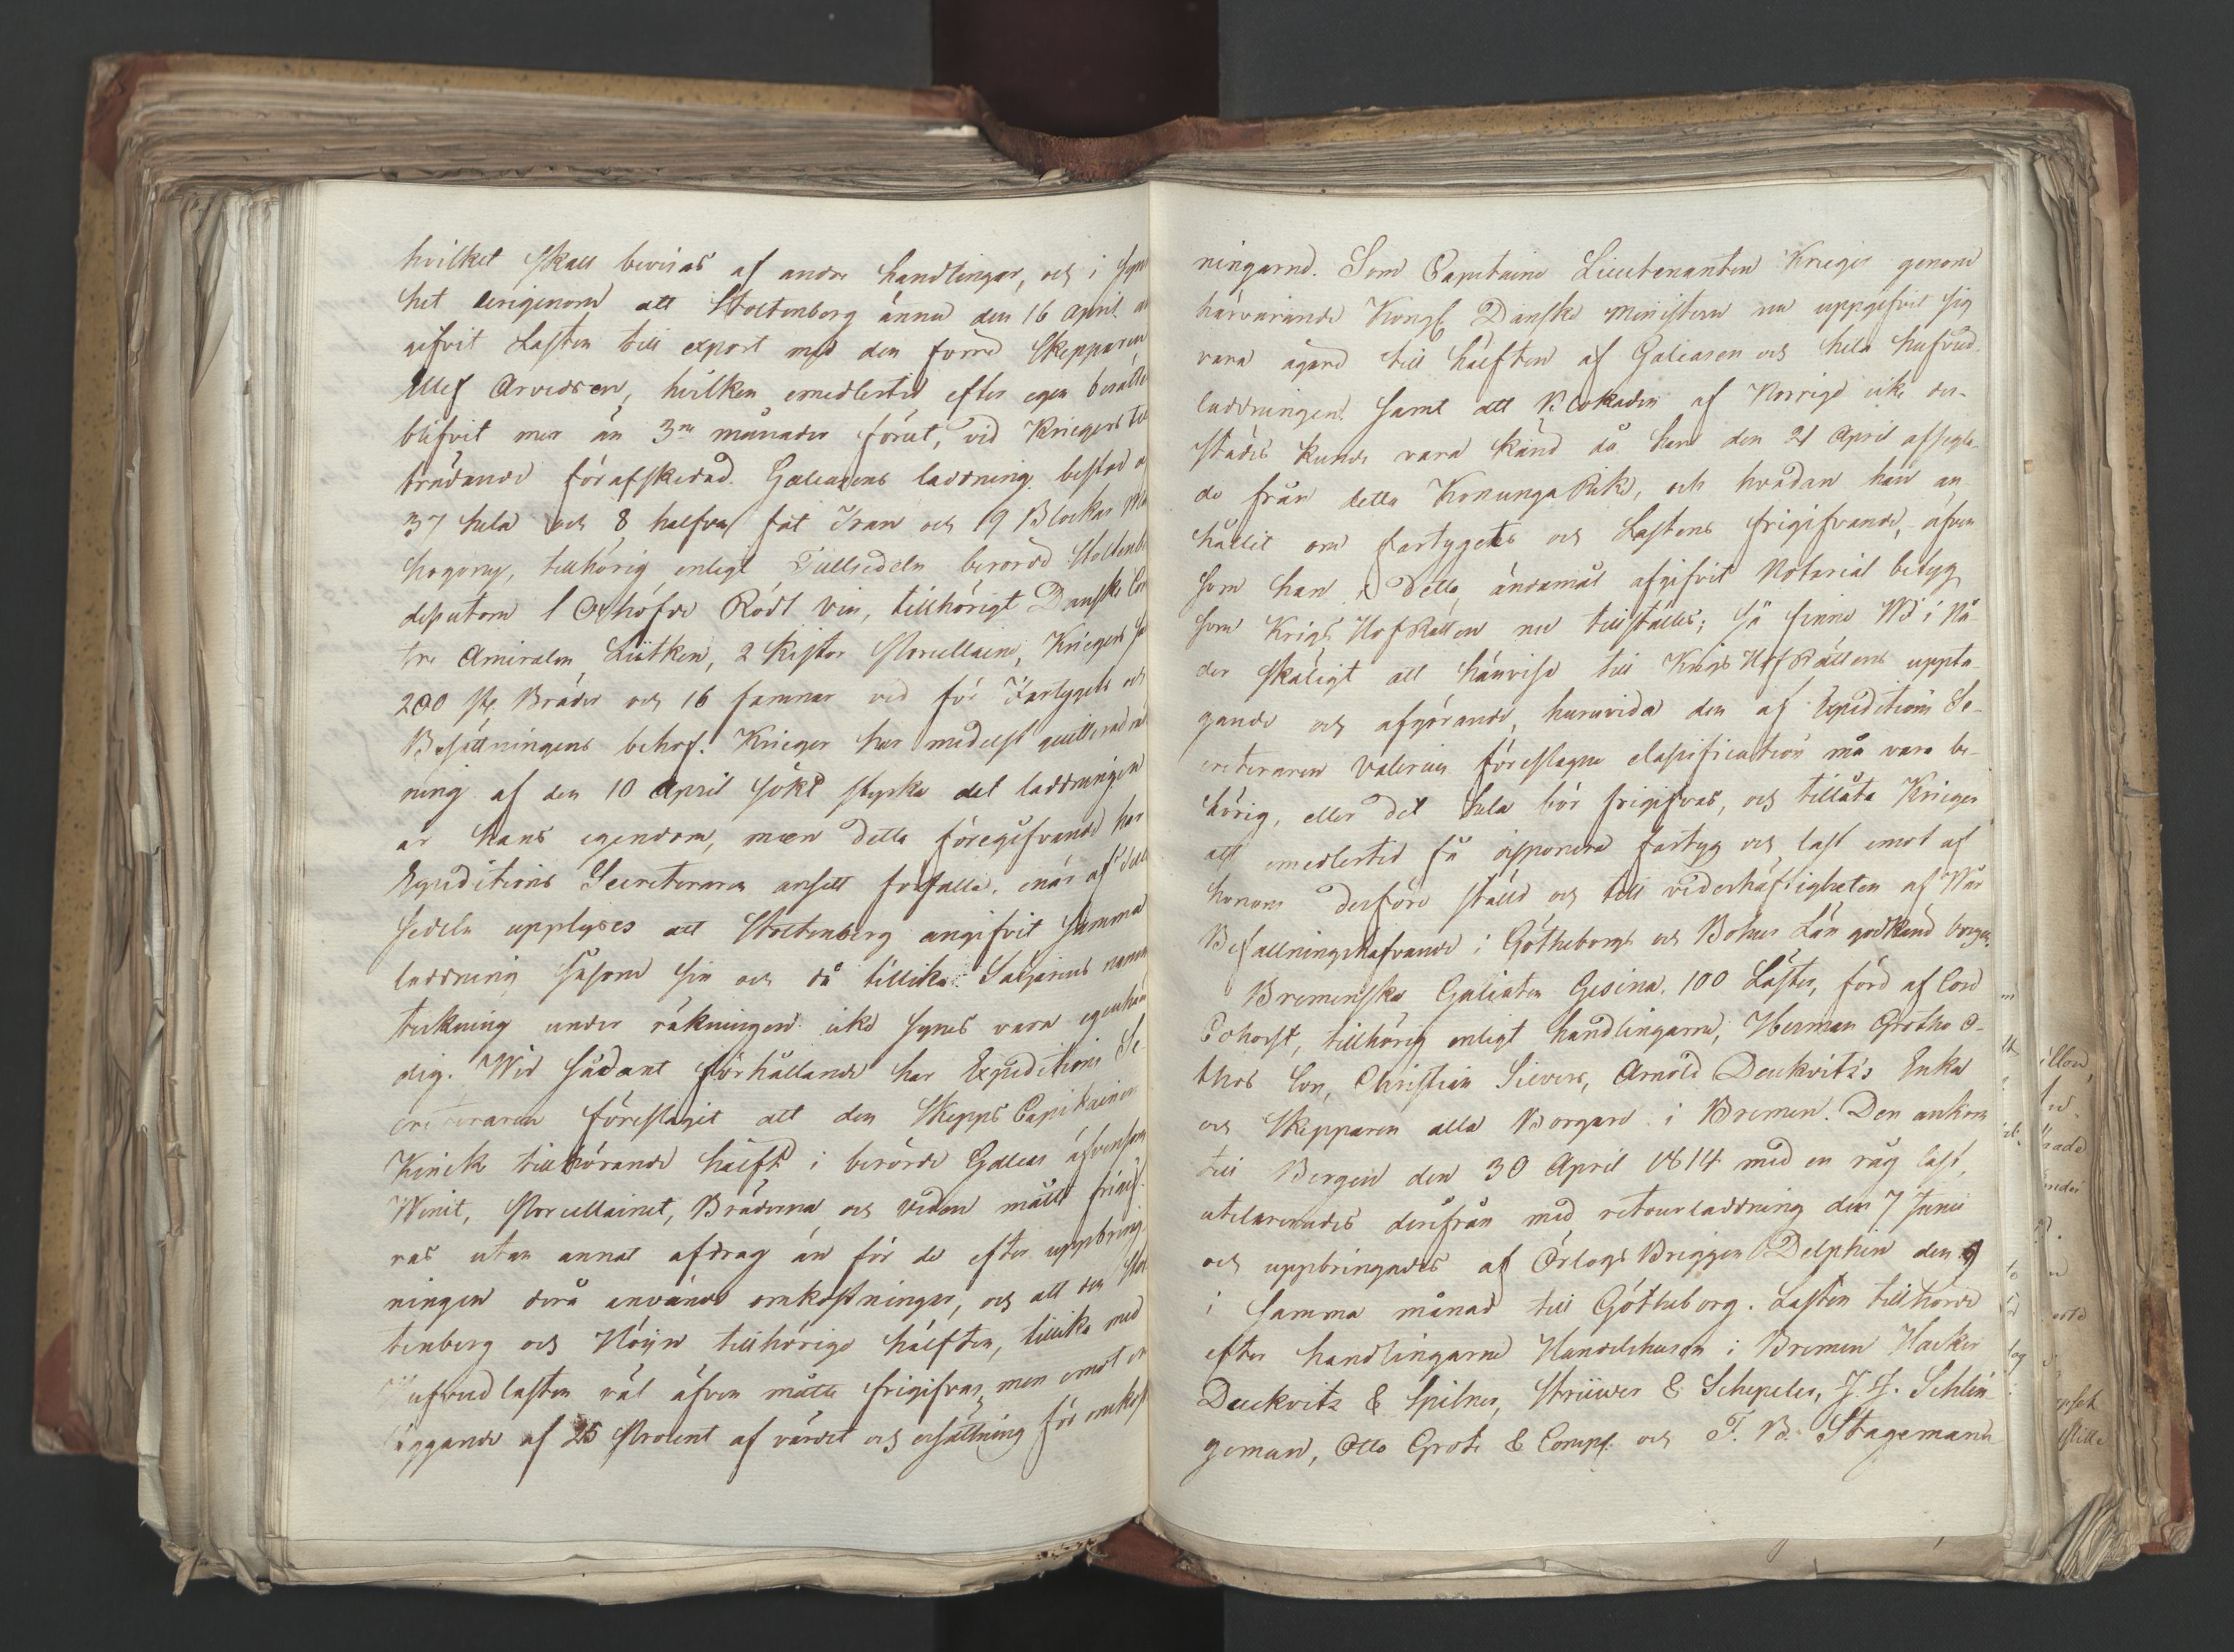 hvilket skall bevisas af andre handlingar, och i syn
het derigenom att Stoltenberg ännu den 16 april
gifvit Lasten till export med den förre Skepparen
Ellef Arvedsen, hvilken emedlertid efter egen berätte
blifvit mer än 3ne månader förut, vid Kriegers till
trädande förafskedad. Galeasens laddning bestod a
37 hela och 8 halfva fat Tran och 19 Blockar Ma
hogony, tillhörig enligt Tullsedeln berörde Stoltenbe
dessutom 1 Oxhöfde Rödt vin, tillhörigt Danske Con
tre Amiralen Lütken, 2 Kistor Porcellaine, Kriegers
200 st. Bräder och 16 famnar ved för Fartygets och
Besättningens behof. Krieger har medelst quitterad räk
ning af den 10 April sökt styrka att laddningen
är hans egendom, men detta föregifvande har
Expeditions Secreteraren ansett förfalla, enär af Tull
sedeln upplyses att Stoltenberg angifvit samma
laddning såsom sin och då tillika Säljarens namn
teckning under räkningen icke synes vara egenhän
dig. Wid sådant förhållande har Expeditions Se-
creteraren föreslagit att den Skepps Capitainen
Kinck tillhörande hälft i berörde Galeas äfvensom
Winet, Porcellainet, Bräderna och veden måtte frigif-
vas utan annat afdrag än för de efter uppbring-
ningen derå använde omkostningar, och att den Stol
tenberg och Höyn tillhörige hälften, tillika med
Hufvudlasten väl äfven måtte frigifvas, men emot er
läggande af 25 Procent af värdet och ersättning för omkost
ningarne. Som Capitaine Lieutenanten Krieger genom
härvarande Kongl. Danske Ministern nu uppgifvit sig
vara ägare till hälften af Galeasen och hela hufvud-
laddningen samt att Blokaden af Norrige icke der-
städes kunde vara känd då han den 21 April afsegla-
de från detta Konunga Rike, och hvådan han an-
hållit om fartygets och Lastens frigifvande, äfven
som han i detta ändamål afgifvit Notarial betyg
som Krigs HofRätten nu tillställes; Så finne Wi i Nå-
der skäligt att hänvisa till Krigs HofRättens uppta-
gande och afgörande, huruvida den af Expeditions Se-
creteraren Valerius föreslagne classification må vara be-
hörig, eller det hela bör frigifvas, och tillåta Krieger
att emedlertid få disponera fartyg och last emot af
honom derföre ställd och till vederhäftigheten af Wår
Befallningshafvande i Götheborgs och Bohus Län godkänd borgen.
Bremenske Galioten Gesina, 100 Läster, förd af Cord
Eckhorst, tillhörig enligt handlingarne, Herman Grothe O-
thos Son, Christian Sievers, Arnold Deukvitz's Enka
och Skepparen alla Borgare i Bremen. Den ankom
till Bergen den 30 April 1814 med en råg last,
utclarerades derifrån med retourladdning den 7 Junii
och uppbringades af Örlogs Briggen Delphin den 9
i samma månad till Götheborg. Lasten tillhörde
efter handlingarne Handelshusen i Bremen Hacker
Deukvitz & Spilner, Strüwer & Schepeler, J. J. Schlin
geman, Otto Grote & Comp. och T. B. Stagemann